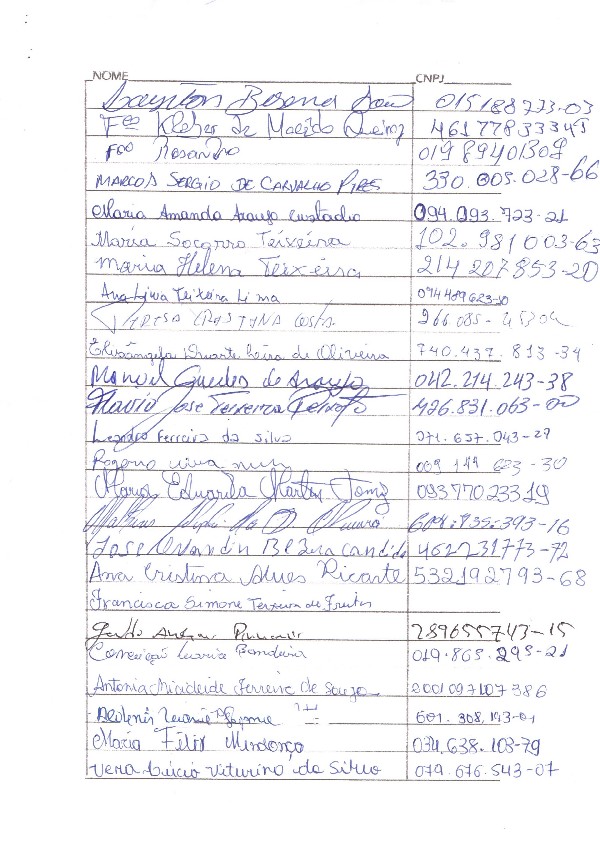 NOME CNPJ
015188773-03
Fco Kleber de Macêdo Queiroz 46177833349
Fco Rosandro 01989401309
MARCOS SERGIO DE CARVALHO PIRES 330.005.028-66
Maria Amanda Araujo Eustadio 094.093.723-21
Maria Socorro Teixeira 102.981003-63
Maria Helena Teixeira 214207853-20
Ana Liwa Teixeira Lima 094489623-10
TERESA CRISTINA Costa
Elisângela Duarte Lima de Oliveira 740.437.813-34
Manoel Guedes de Araujo 042.214.243-38
Flavio Jose Teixeira Peixoto 426.831.063-00
Leandro Ferreira da Silva 071.657.043-29
009 144 623-30
Maria Eduarda Martins 09377023319
604.835.393-16
Jose Ovandin Bezerra candido 462231773-72
Ana Cristina Alves Ricarte 532192793-68
Francisca Simone Teixeira de Freitas
289655743-15
Conceição Maria Bandeira 019.865.295-21
Antonia Micideide Ferreira De Souza 2001097107386
601.308.143-01
Maria Felix Mendonça 034.638.103-79
Vera Lucio Viturino da Silva 079.676.543-07